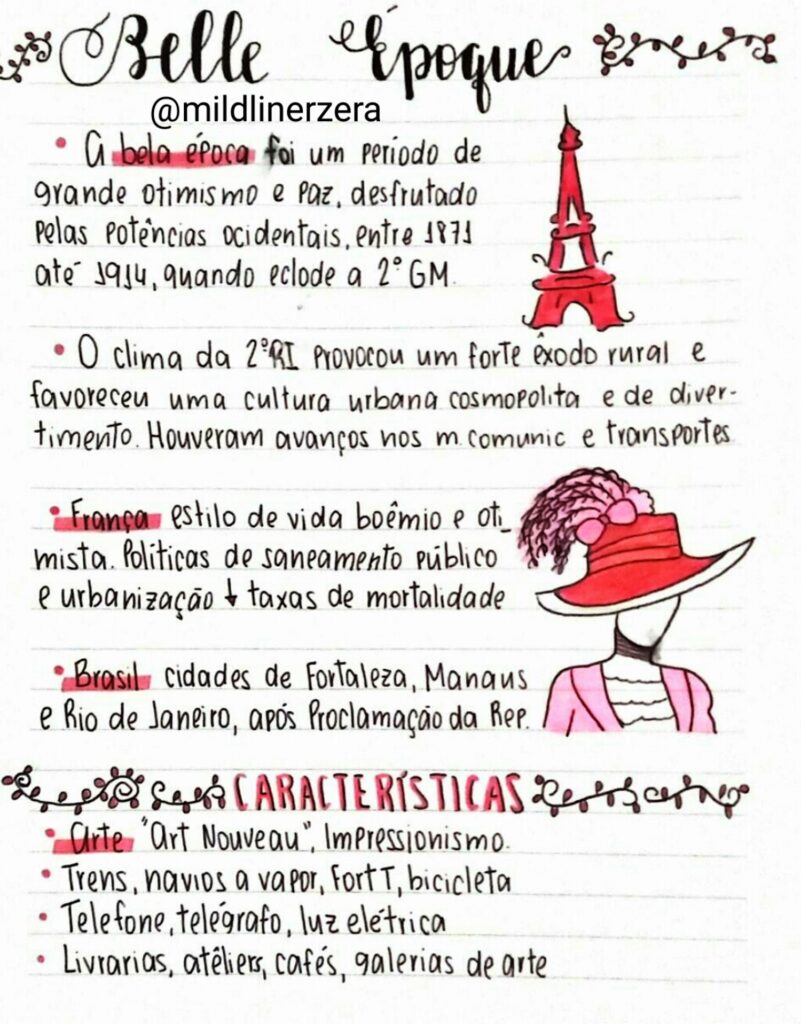 Belle Époque
@mildlinerzera
• A bela época foi um período de
grande otimismo e paz, desfrutado
pelas potências ocidentais, entre 1871
até 1914, quando eclode a 2° GM.
• O clima da 2°RI provocou um forte êxodo rural e
favoreceu uma cultura urbana cosmopolita e de diver-
timento. Houveram avanços nos m.comunic e transportes
• França estilo de vida boêmio e oti_
mista. Políticas de saneamento público
e urbanização ↓ taxas de mortalidade
• Brasil cidades de Fortaleza, Manaus
e Rio de Janeiro, após Proclamação da Rep.
CARACTERÍSTICAS
• Arte "Art Nouveau", Impressionismo.
• Trens, navios a vapor, Fort T, bicicleta
• Telefone, telégrafo, luz elétrica
• Livrarias, atêliers, cafés, galerias de arte